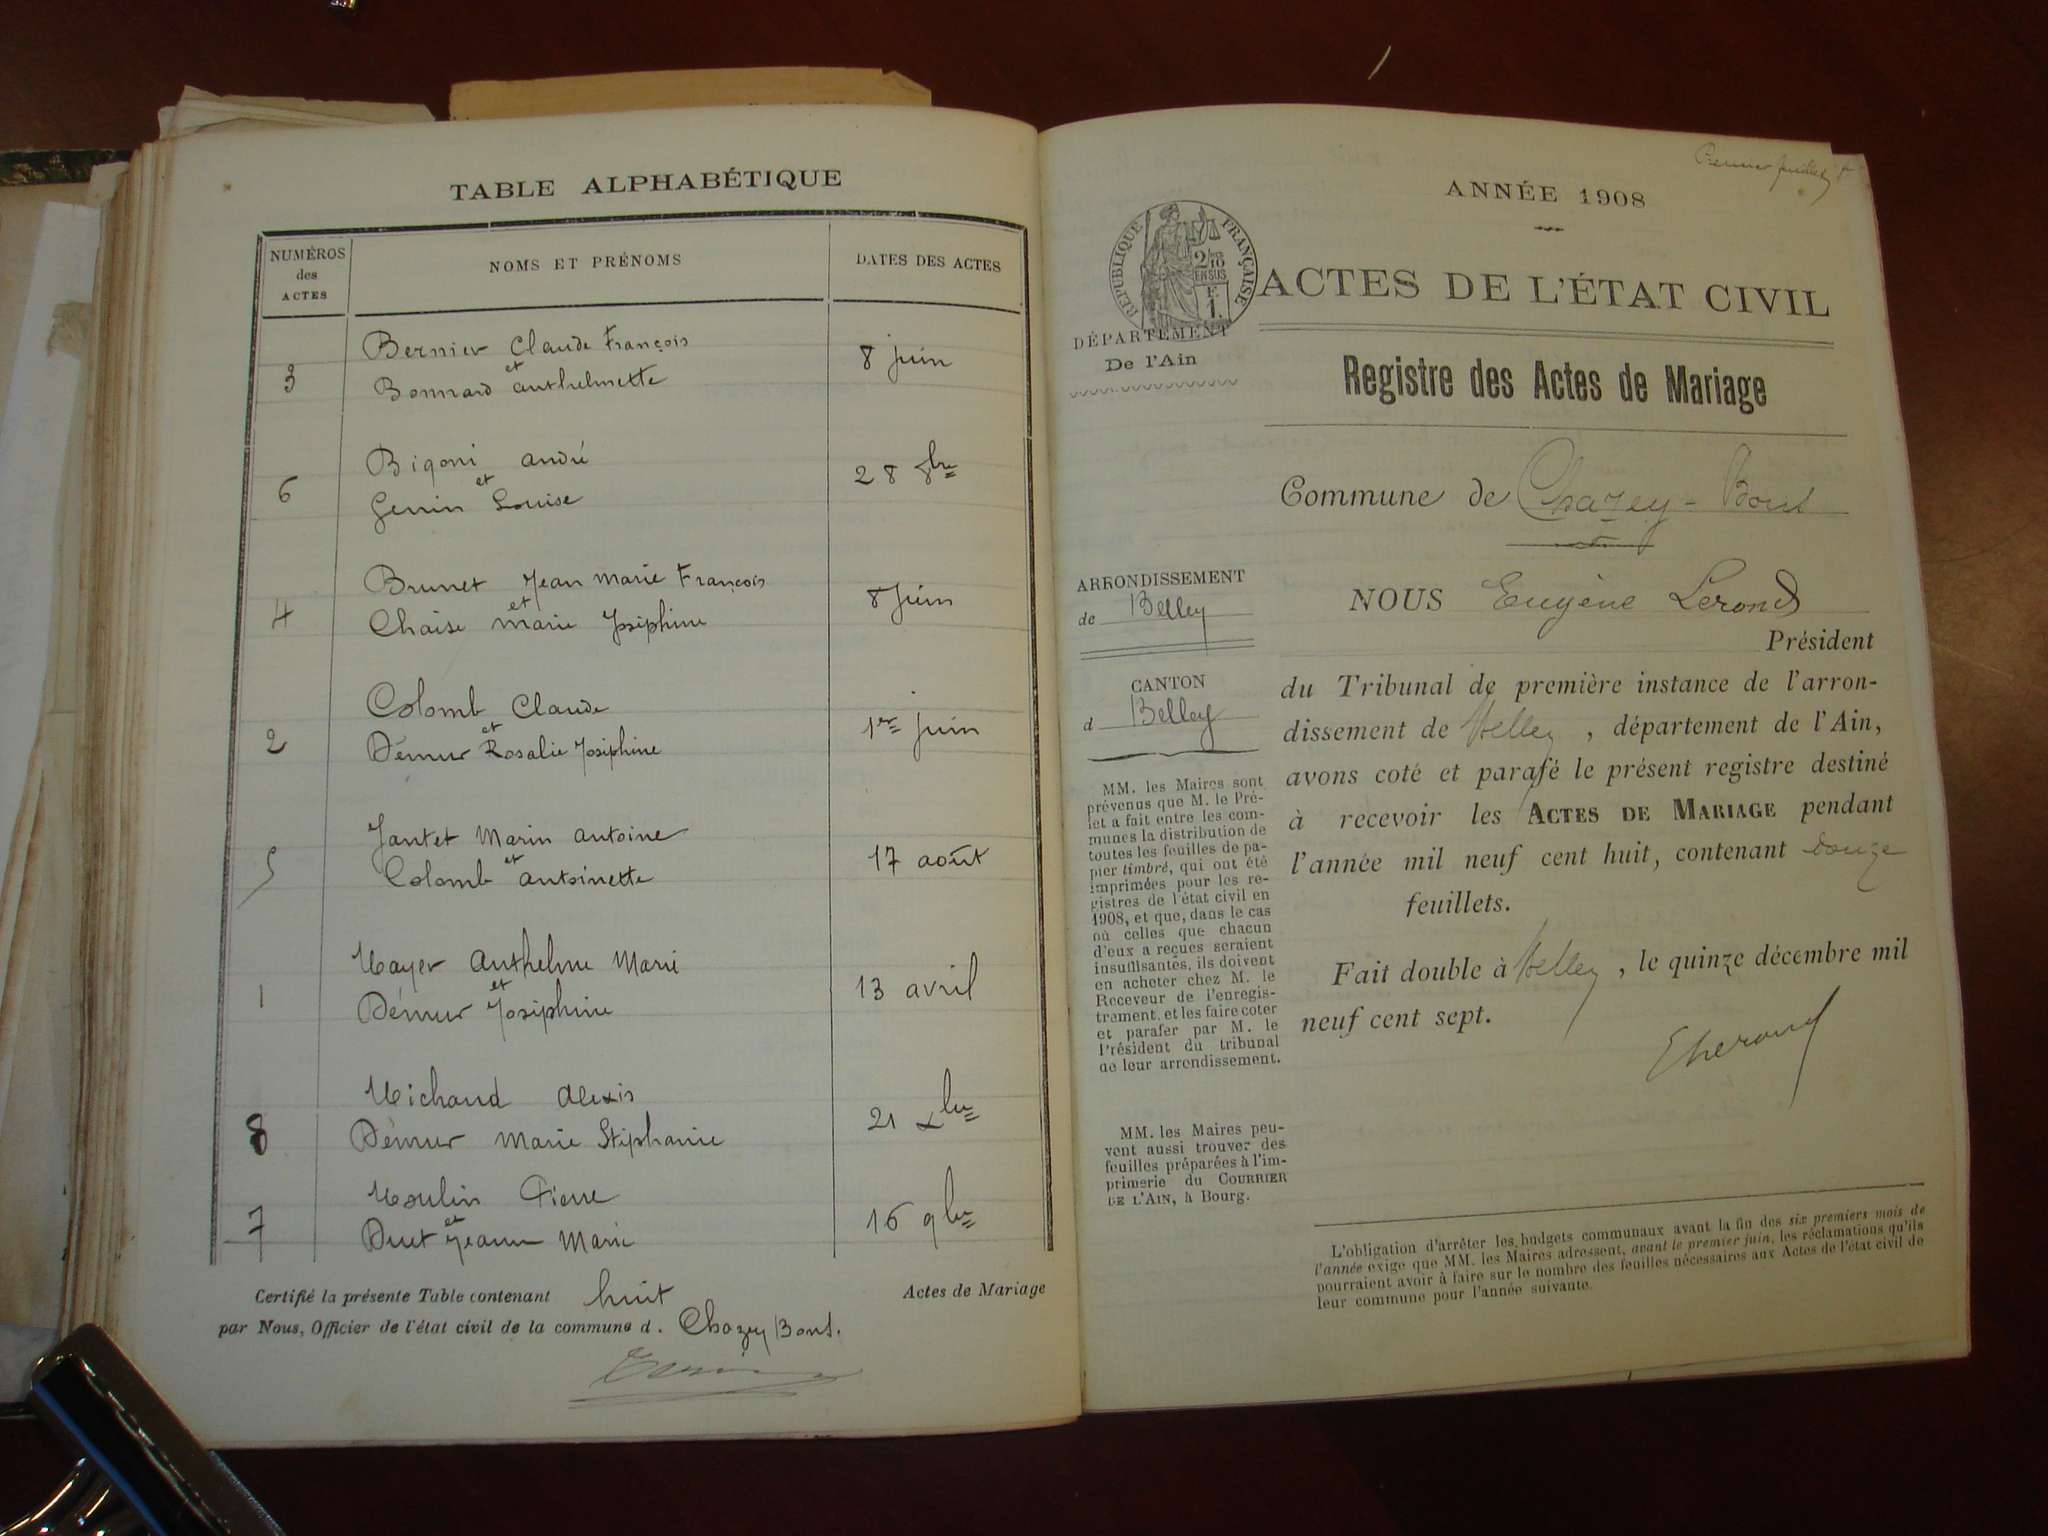 TABLE ALPHABÉTIQUE
NUMÉROS
des
ACTES
NOMS ET PRÉNOMS
DATES DES ACTES
3
Bernier Claude François
et
Bonnard Anthelmette
8 juin
6
Bigoni André
et
Genin Louise
28 8bre
4
Brunet Jean Marie François
et
Chaise Marie Joséphine
8 juin
2
Colomb Claude
et
Démur Rosalie Joséphine
1er juin
5
Jantet Marin Antoine
et
Colomb Antoinette
17 août
1
Mayer Anthelme Marie
et
Démur Joséphine
13 avril
8
Michaud Alexis
Démur Marie Stéphanie
21 Xbre
7
Moulin Pierre
et
Jeanne Marie
16 9bre
Certifié la présente Table contenant huit Actes de Mariage
par Nous, Officier de l'état civil de la commune d. Chazey Bons.
Premier feuillet
ANNÉE 1908
RÉPUBLIQUE FRANÇAISE
2/10
EN SUS
F.
1.
ACTES DE L'ÉTAT CIVIL
DÉPARTEMENT
De l'Ain
Registre des Actes de Mariage
Commune de Chazey-Bons
ARRONDISSEMENT
de Belley
CANTON
d Belley
MM. les Maires sont
prévenus que M. le Pré-
fet a fait entre les com-
munes la distribution de
toutes les feuilles de pa-
pier timbré, qui ont été
imprimées pour les re-
gistres de l'état civil en
1908, et que, dans le cas
où celles que chacun
d'eux a reçues seraient
insuffisantes, ils doivent
en acheter chez M. le
Receveur de l'enregis-
trement, et les faire coter
et parafer par M. le
Président du tribunal
de leur arrondissement.
MM. les Maires peu-
vent aussi trouver des
feuilles préparées à l'im-
primerie du COURRIER
DE L'AIN, à Bourg.
NOUS Eugène Lerond
Président
du Tribunal de première instance de l'arron-
dissement de Belley, département de l'Ain,
avons coté et parafé le présent registre destiné
à recevoir les ACTES DE MARIAGE pendant
l'année mil neuf cent huit, contenant douze
feuillets.
Fait double à Belley, le quinze décembre mil
neuf cent sept.
L'obligation d'arrêter les budgets communaux avant la fin des six premiers mois de
l'année exige que MM. les Maires adressent, avant le premier juin, les réclamations qu'ils
pourraient avoir à faire sur le nombre des feuilles nécessaires aux Actes de l'état civil de
leur commune pour l'année suivante.